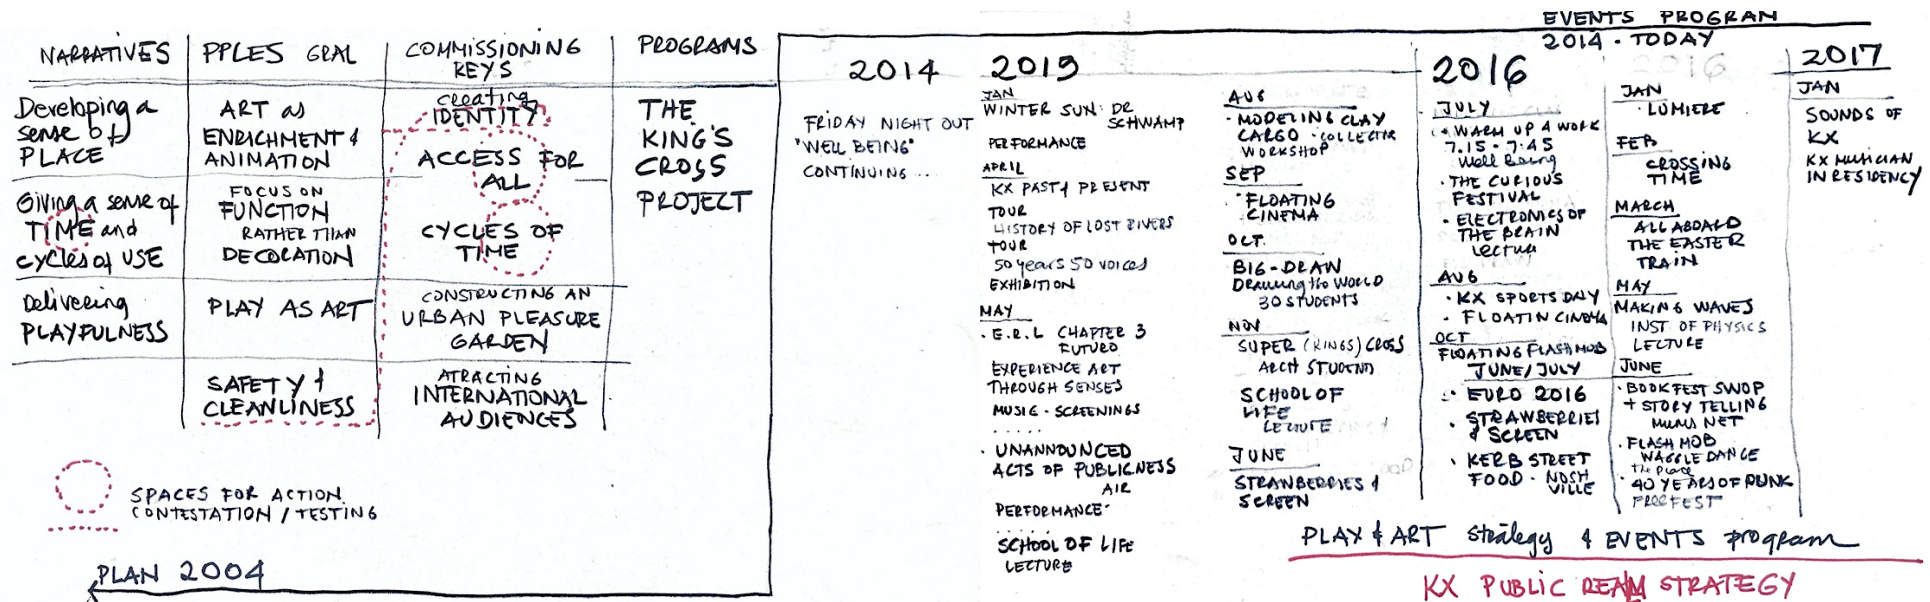 NARRATIVES
Developing a
sense of
PLACE
Giving a sense of
TIME and
cycles of USE
Delivering
PLAYFULNESS
PPLES GRAL
ART as
ENRICHMENT &
ANIMATION
FOCUS ON
FUNCTION
RATHER THAN
DECORATION
PLAY AS ART
SAFETY &
CLEANLINESS
COMMISSIONING
KEYS
creating
IDENTITY
ACCESS FOR
ALL
CYCLES OF
TIME
CONSTRUCTING AN
URBAN PLEASURE
GARDEN
ATRACTING
INTERNATIONAL
AUDIENCES
PROGRAMS
THE
KING'S
CROSS
PROJECT
SPACES FOR ACTION
CONTESTATION / TESTING
PLAN 2004
EVENTS PROGRAM
2014 - TODAY
2014
FRIDAY NIGHT OUT
"WELL BEING"
CONTINUING ..
2015
JAN
WINTER SUN: DR
SCHWAMP
PERFORMANCE
APRIL
KX PAST & PRESENT
TOUR
HISTORY OF LOST RIVERS
TOUR
50 years 50 voices
EXHIBITION
MAY
· E.R.L CHAPTER 3
FUTURO
EXPERIENCE ART
THROUGH SENSES
MUSIC - SCREENINGS
.....
· UNANNOUNCED
ACTS OF PUBLICNESS
AIR
PERFORMANCE-
......
SCHOOL OF LIFE
LECTURE
AUG
· MODELING CLAY
CARGO · COLLECTIVE
WORKSHOP
SEP
· FLOATING
CINEMA
OCT.
BIG-DRAW
Drawing the WORLD
30 STUDENTS
NOV
SUPER (KINGS) CROSS
ARCH STUDENTS
SCHOOL OF
LIFE
LECTURE
JUNE
STRAWBERRIES &
SCREEN
2016
JULY
· WARM UP 4 WORK
7.15 - 7:45
Well Being
· THE CURIOUS
FESTIVAL
· ELECTRONICS OF
THE BRAIN
Lecture
AUG
· KX SPORTS DAY
· FLOATIN CINEMA
OCT
FLOATING FLASH MOB
JUNE/JULY
· EURO 2016
· STRAWBERRIES
& SCREEN
· KERB STREET
FOOD - NOSH
VILLE
2016
JAN
· LUMIERE
FEB
CROSSING
TIME
MARCH
ALL ABOARD
THE EASTER
TRAIN
MAY
MAKING WAVES
INST. OF PHYSICS
LECTURE
JUNE
· BOOK FEST SWOP
+ STORY TELLING
MUMS NET
· FLASH MOB
WAGGLE DANCE
the place
· 40 YEARS OF PUNK
FREE FEST
2017
JAN
SOUNDS OF
KX
KX MUSICIAN
IN RESIDENCY
PLAY & ART strategy & EVENTS program
KX PUBLIC REALM STRATEGY